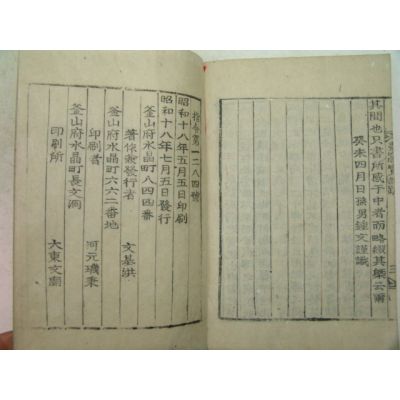 其間也只書所感于中者而略綴其槩云爾
癸未四月日孫男鍾文謹識
指令第一二八四號
昭和十八年五月五日印刷
昭和十八年七月五日發行
釜山府水晶町八四四番
著作兼發行者 文基洪
釜山府水晶町六六二番地
印刷者 河元璣秉
釜山府水晶町長文洞
印刷所 大東文廟